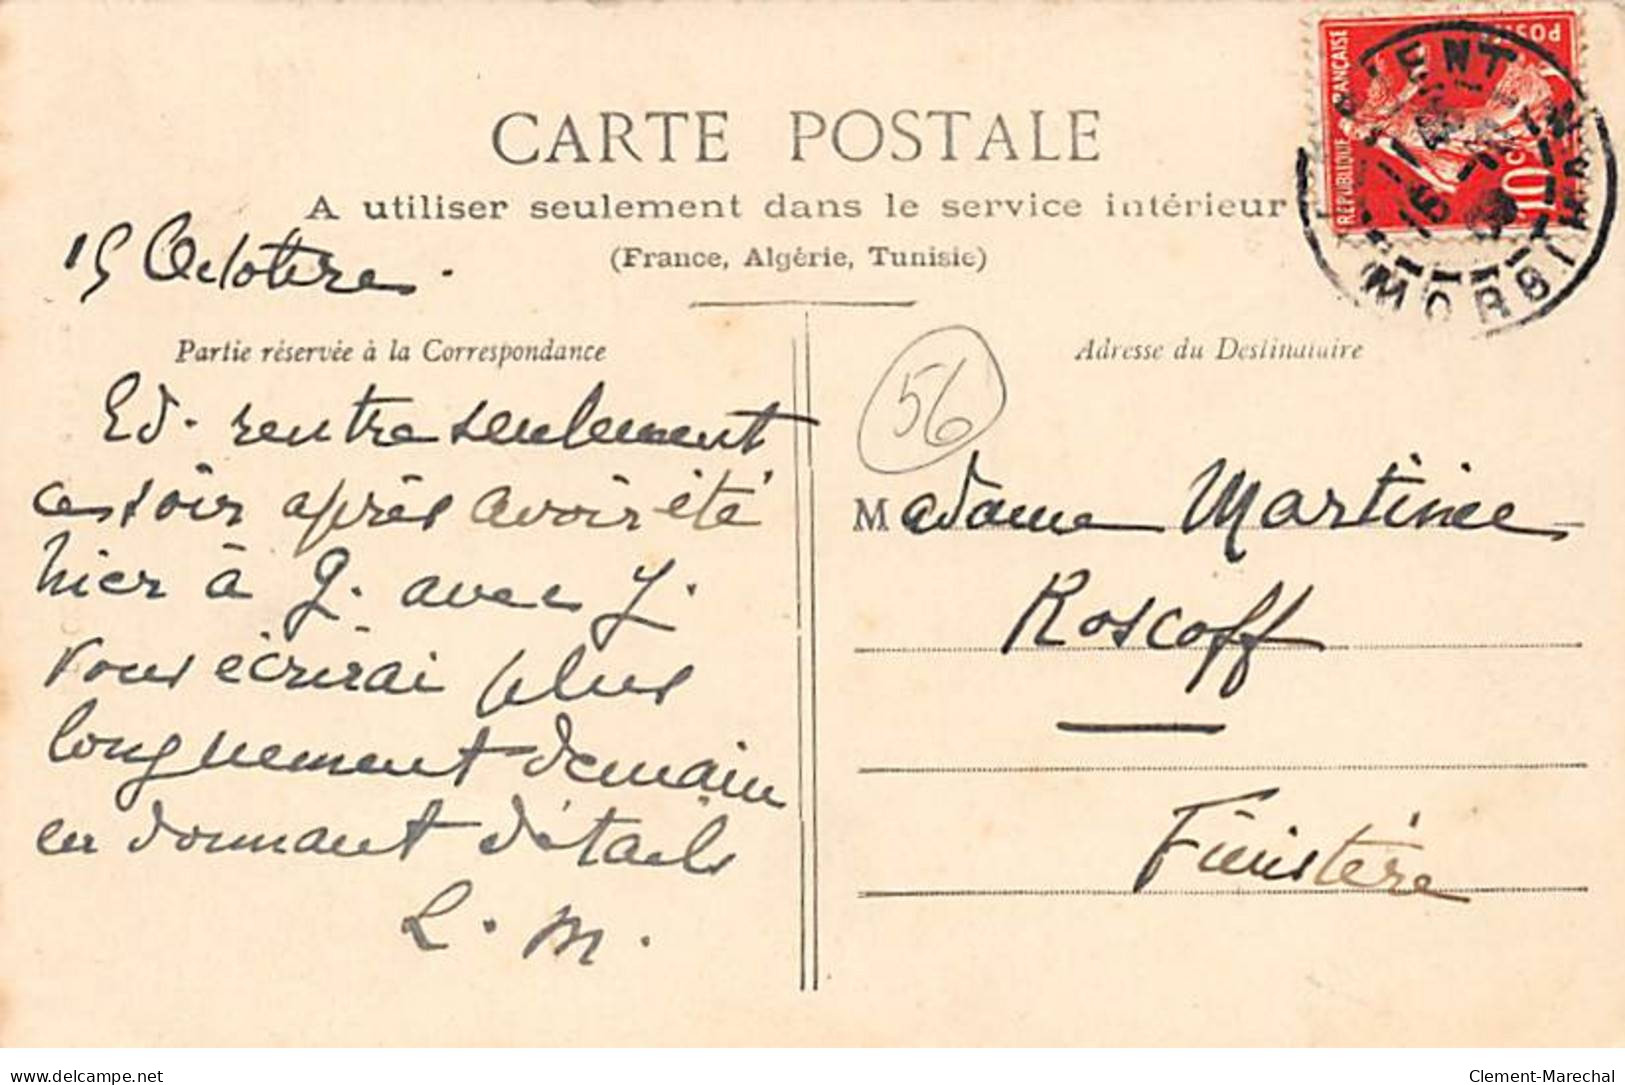 CARTE POSTALE
A utiliser seulement dans le service intérieur
(France, Algérie, Tunisie)
15 Octobre.
Partie réservée à la Correspondance
Ed. rentre seulement
ce soir après avoir été
hier à G. avec Y.
vous écrirai plus
longuement demain
en donnant détails
L. M.
Adresse du Destinataire
56
Madame Martinie
Roscoff
Finistère
REPUBLIQUE FRANÇAISE
POSTES
10c
MORBIHAN
delcampe.net
Clement-Marechal